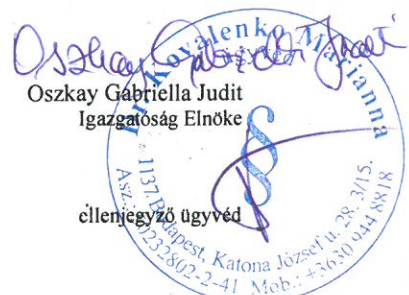 Oszkay Gabriella Judit
Oszkay Gabriella Judit
Igazgatóság Elnöke
ellenjegyző ügyvéd
Dr. Kovalenko Marianna
ügyvéd
§
1137 Budapest, Katona József u. 28. 3/15.
Asz.: 0232802-2-41 Mob.: +3630 944 8818